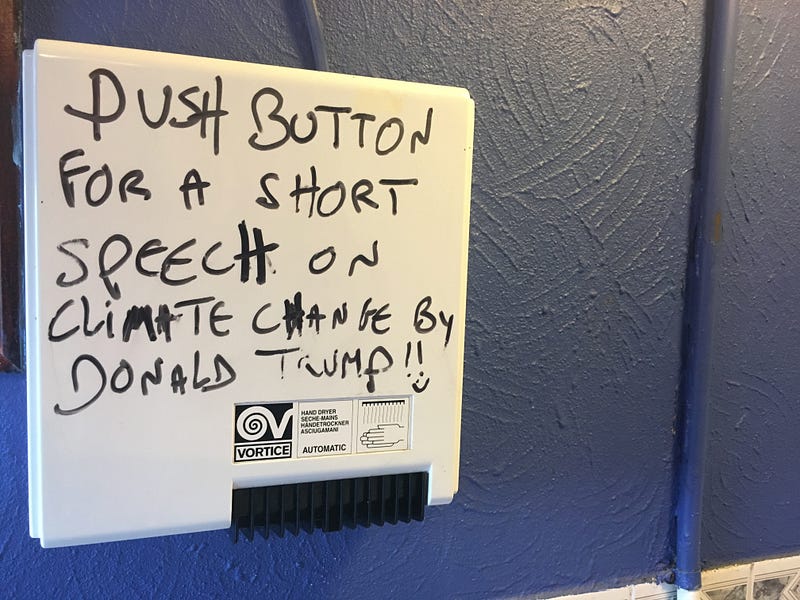 PUSH BUTTON
FOR A SHORT
SPEECH ON
CLIMATE CHANGE BY
DONALD TRUMP!!
VORTICE
HAND DRYER
SECHE-MAINS
HÄNDETROCKNER
ASCIUGAMANI
AUTOMATIC